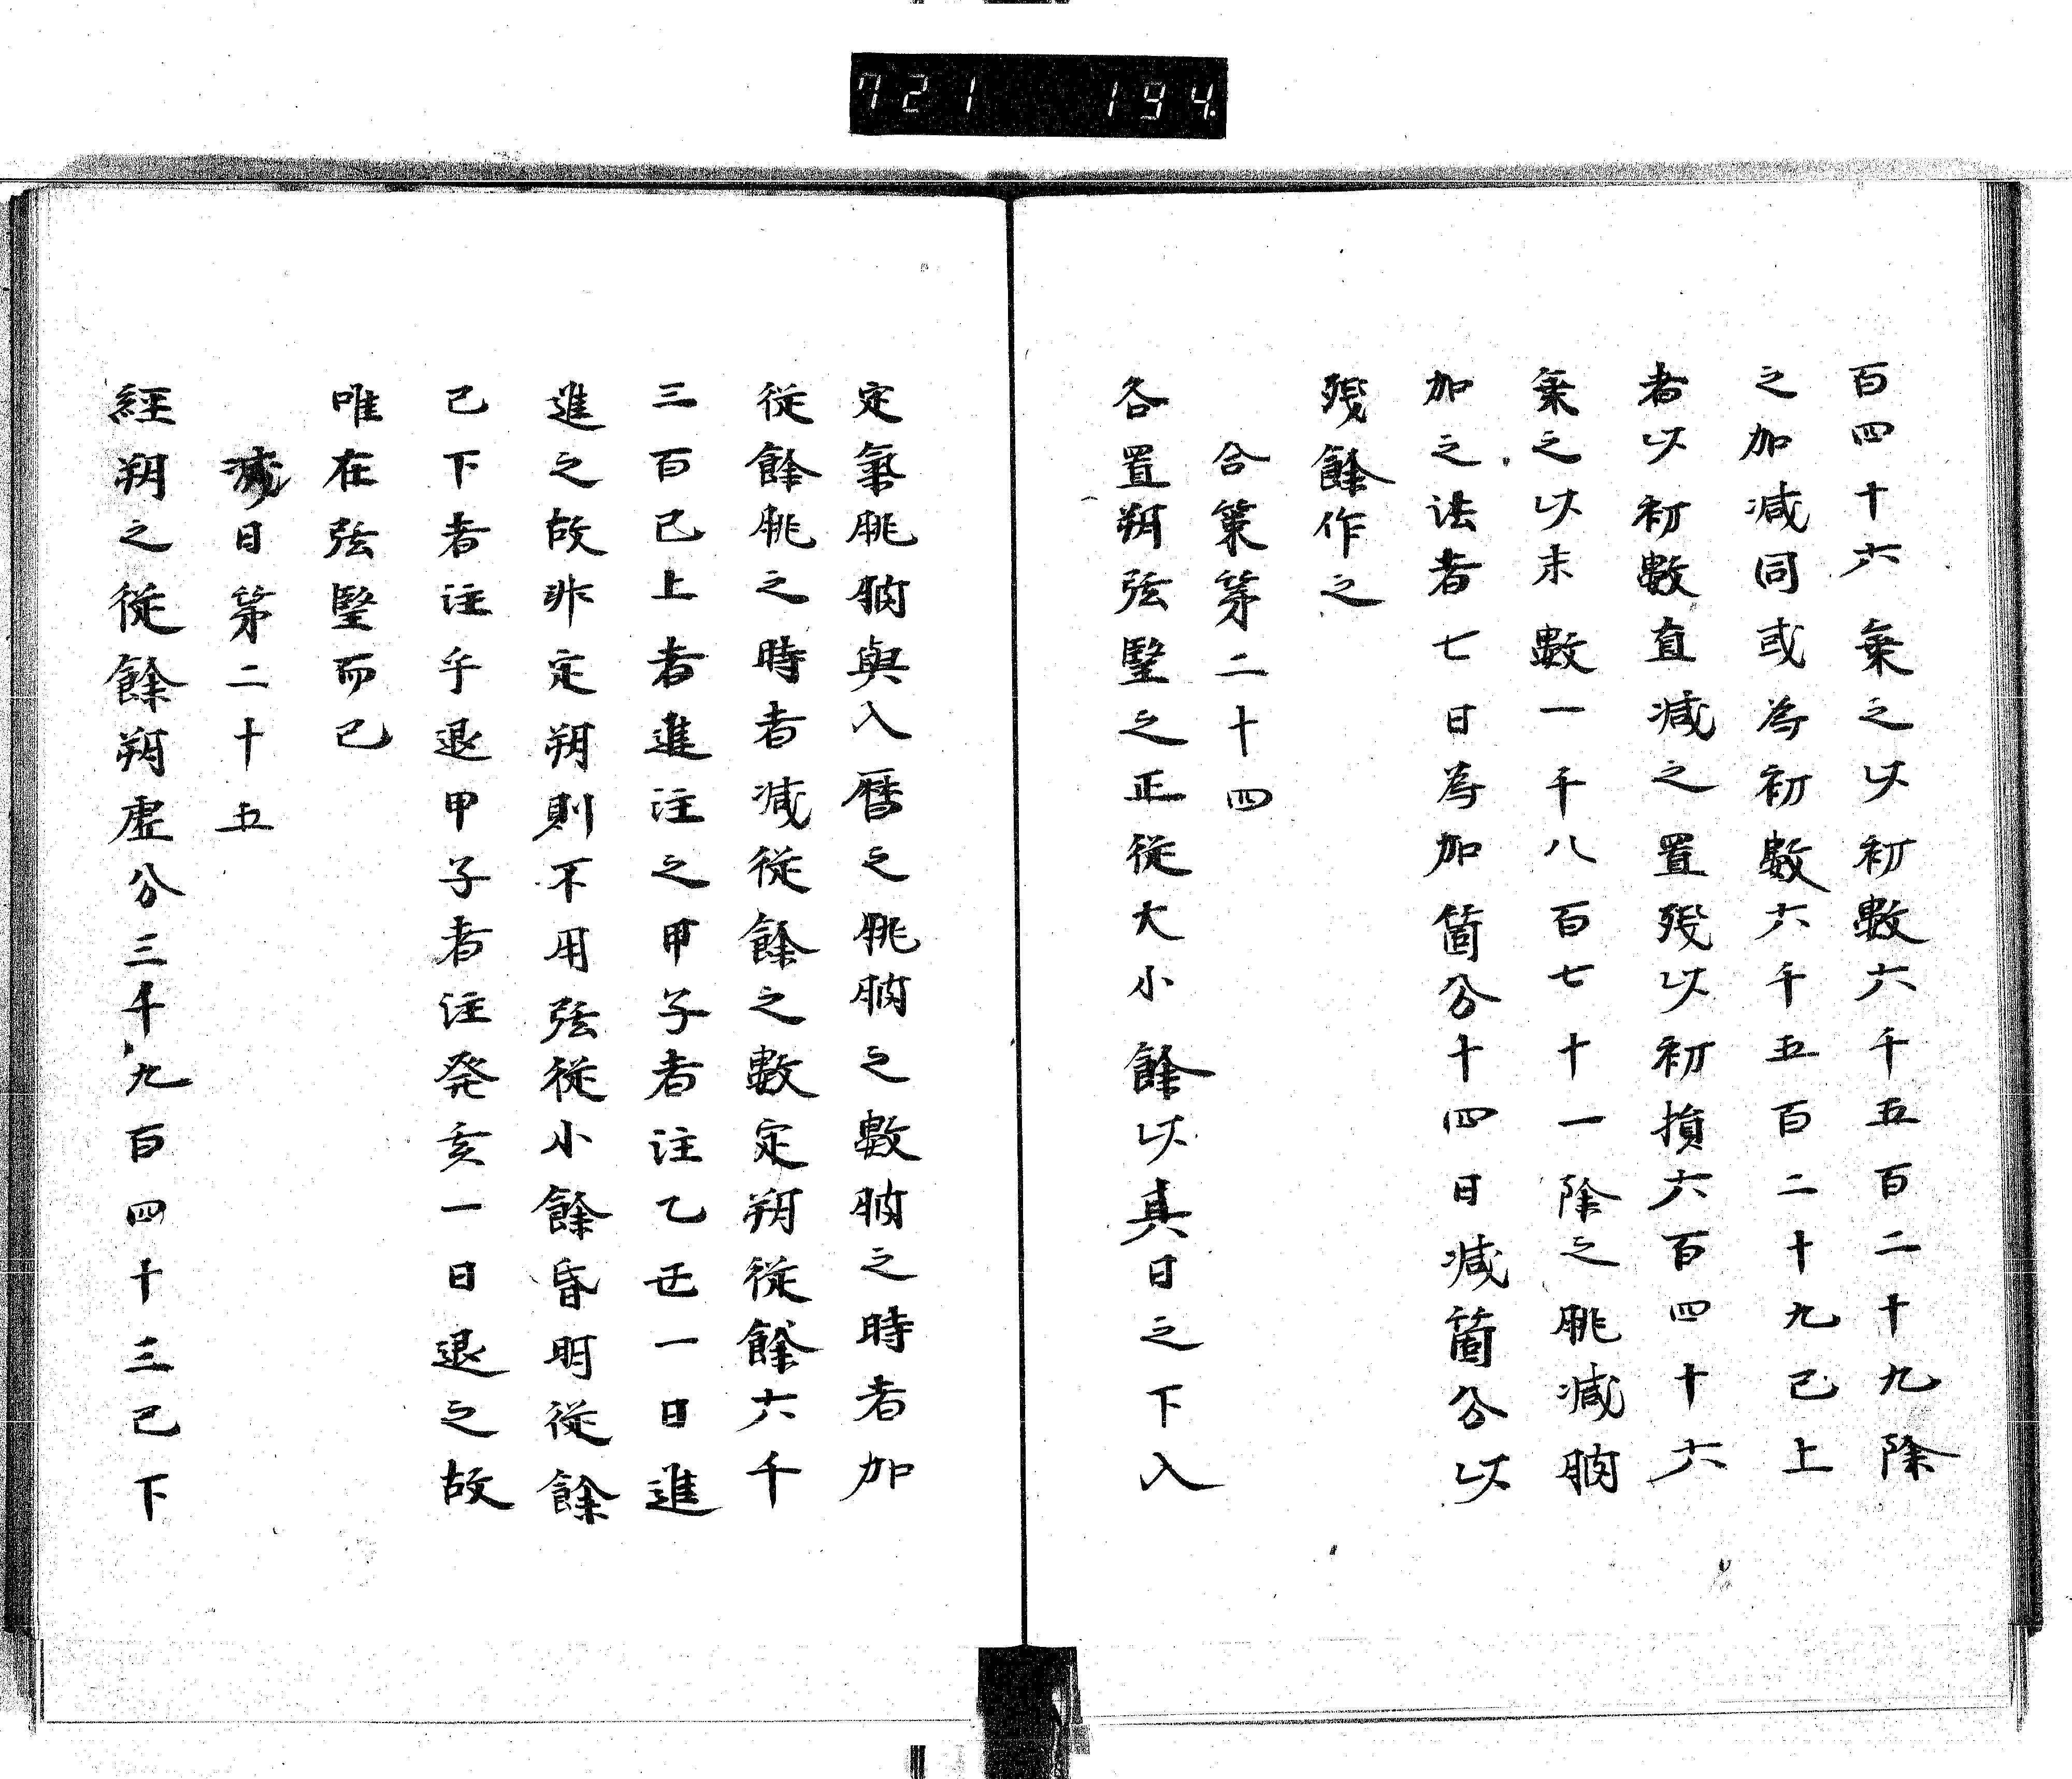 721 194.
百四十六乗之以初數六千五百二十九除
之加減同或為初數六千五百二十九已上
者以初數直減之置殘以初損六百四十六
乗之以末數一千八百七十一除之朓減朒
加之法者七日為加箇分十四日減箇分以
殘餘作之
合策第二十四
各置朔弦望之正從大小餘以真日之下入
定氣朓朒與入暦之朓朒之數朒之時者加
從餘朓之時者減從餘之數定朔從餘六千
三百已上者進注之甲子者注乙丑一日進
進之故非定朔則不用弦從小餘昏明從餘
已下者注乎退甲子者注癸亥一日退之故
唯在弦望而已
減日第二十五
經朔之從餘朔虚分三千九百四十三已下